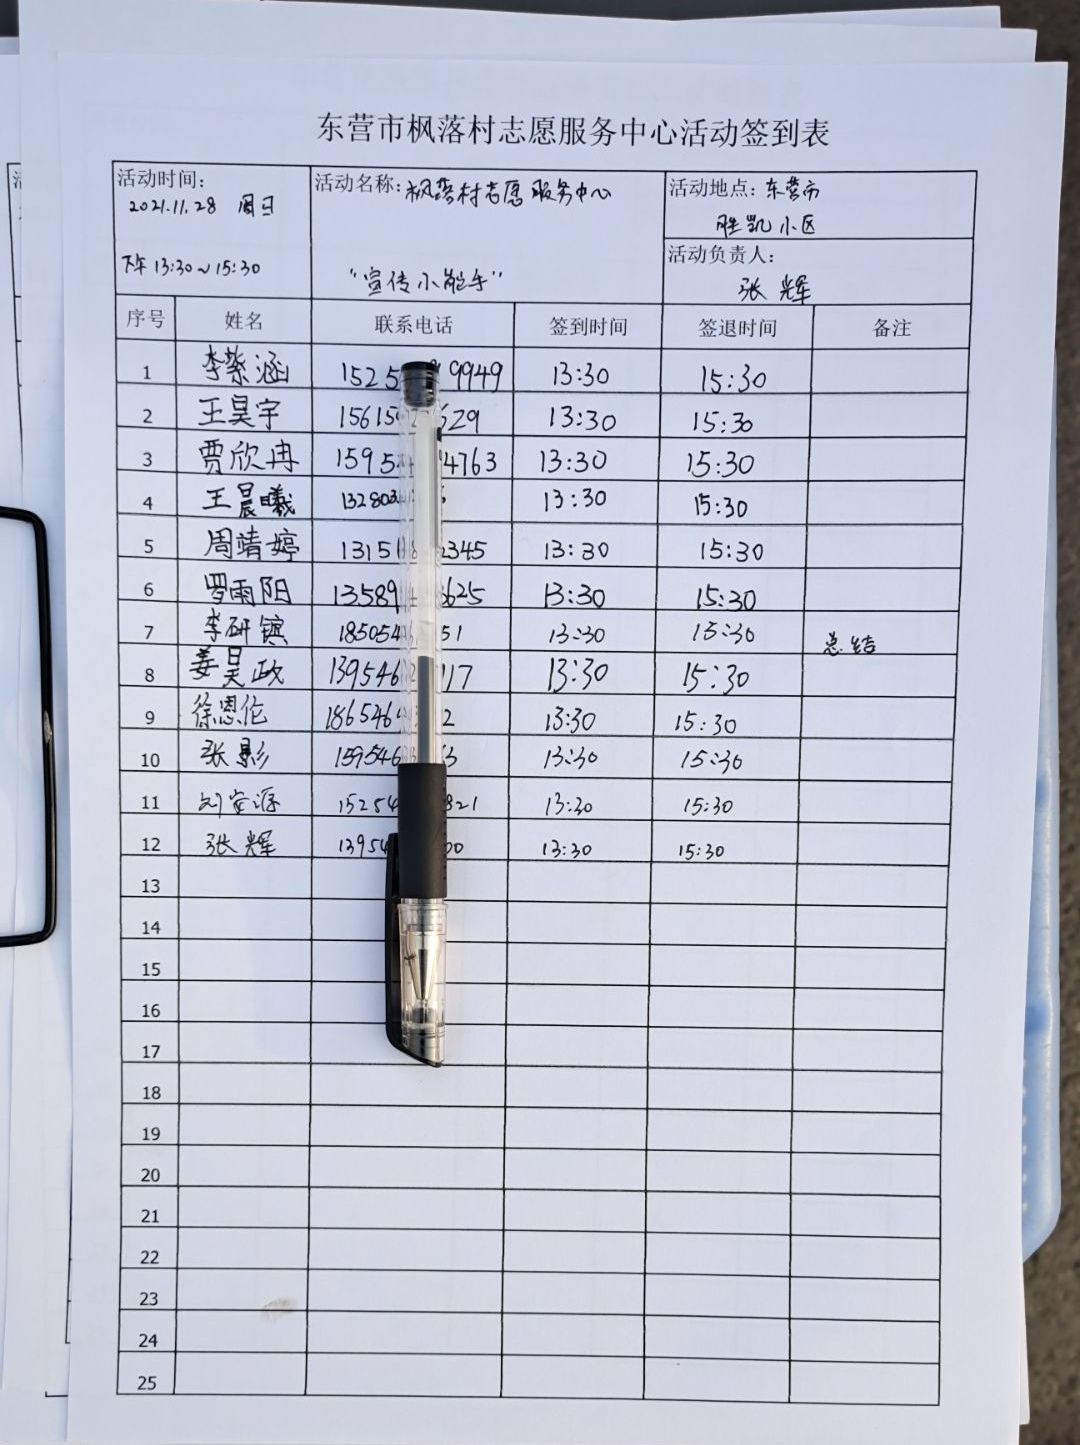 东营市枫落村志愿服务中心活动签到表
活动时间: 活动名称:枫落村志愿服务中心 活动地点: 东营市
2021.11.28 周日 胜凯小区
下午 13:30~15:30 "宣传小能手" 活动负责人:
张辉
序号 姓名 联系电话 签到时间 签退时间 备注
1 李紫涵 1525 9949 13:30 15:30
2 王昊宇 15615 629 13:30 15:30
3 贾欣冉 1595 4763 13:30 15:30
4 王晨曦 13280 13:30 15:30
5 周靖婷 1315 2345 13:30 15:30
6 罗雨阳 13589 3625 13:30 15:30
7 李研镔 185054 51 13:30 15:30 总结
8 姜昊政 139546 117 13:30 15:30
9 徐恩伦 186546 2 13:30 15:30
10 张影 159546 3 13:30 15:30
11 15254 821 13:30 15:30
12 张辉 1395 00 13:30 15:30
13
14
15
16
17
18
19
20
21
22
23
24
25